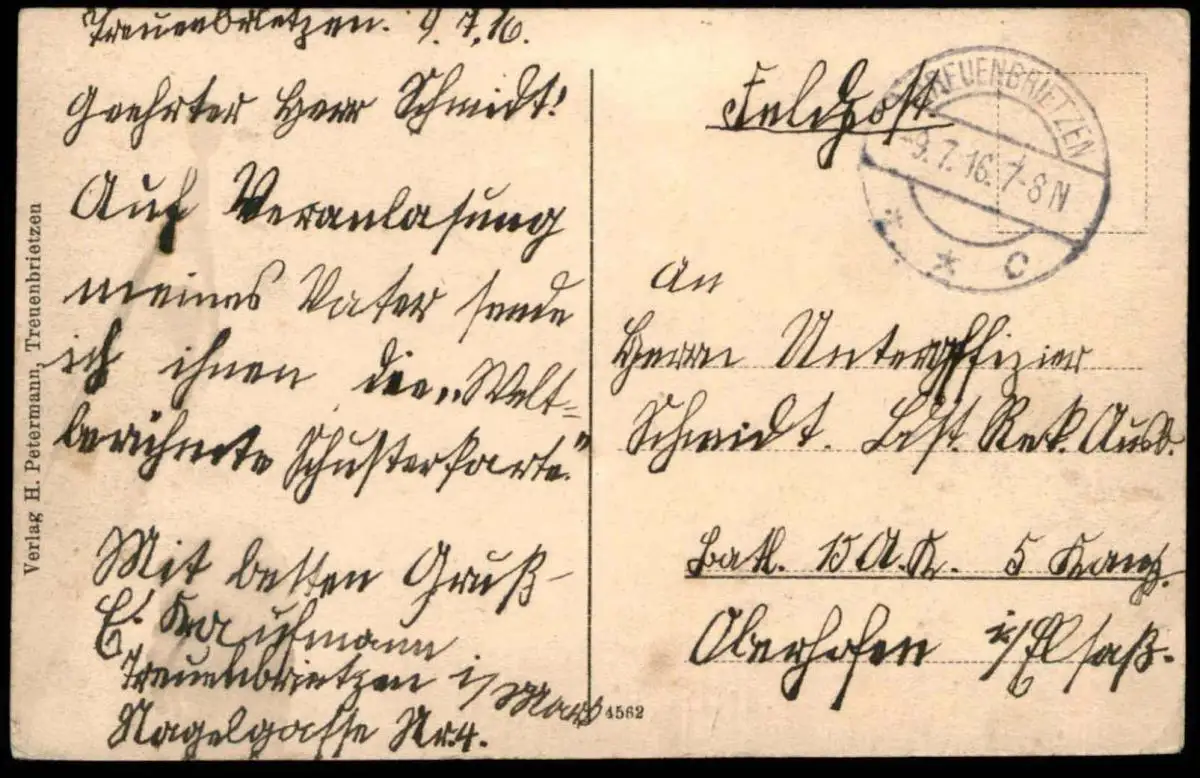 Treuenbrietzen. 9.7.16.
Geehrter Herr Schmidt!
Auf Veranlasung
meines Vater sende
ich ihnen die „Welt=
berühmte Schusterkarte."
Mit besten Gruß
E. Kaufmann
Treuenbrietzen i/Mark
Nagelgasse Nr. 4.
Verlag H. Petermann, Treuenbrietzen
4562
Feldpost.
TREUENBRIETZEN
-9.7.16. 7-8N
* * c
An
Herrn Unteroffizier
Schmidt. Ldst. Rek. Ausb.
Batl. 15 A.K. 5 Komp.
Oberhofen i/Elsaß.